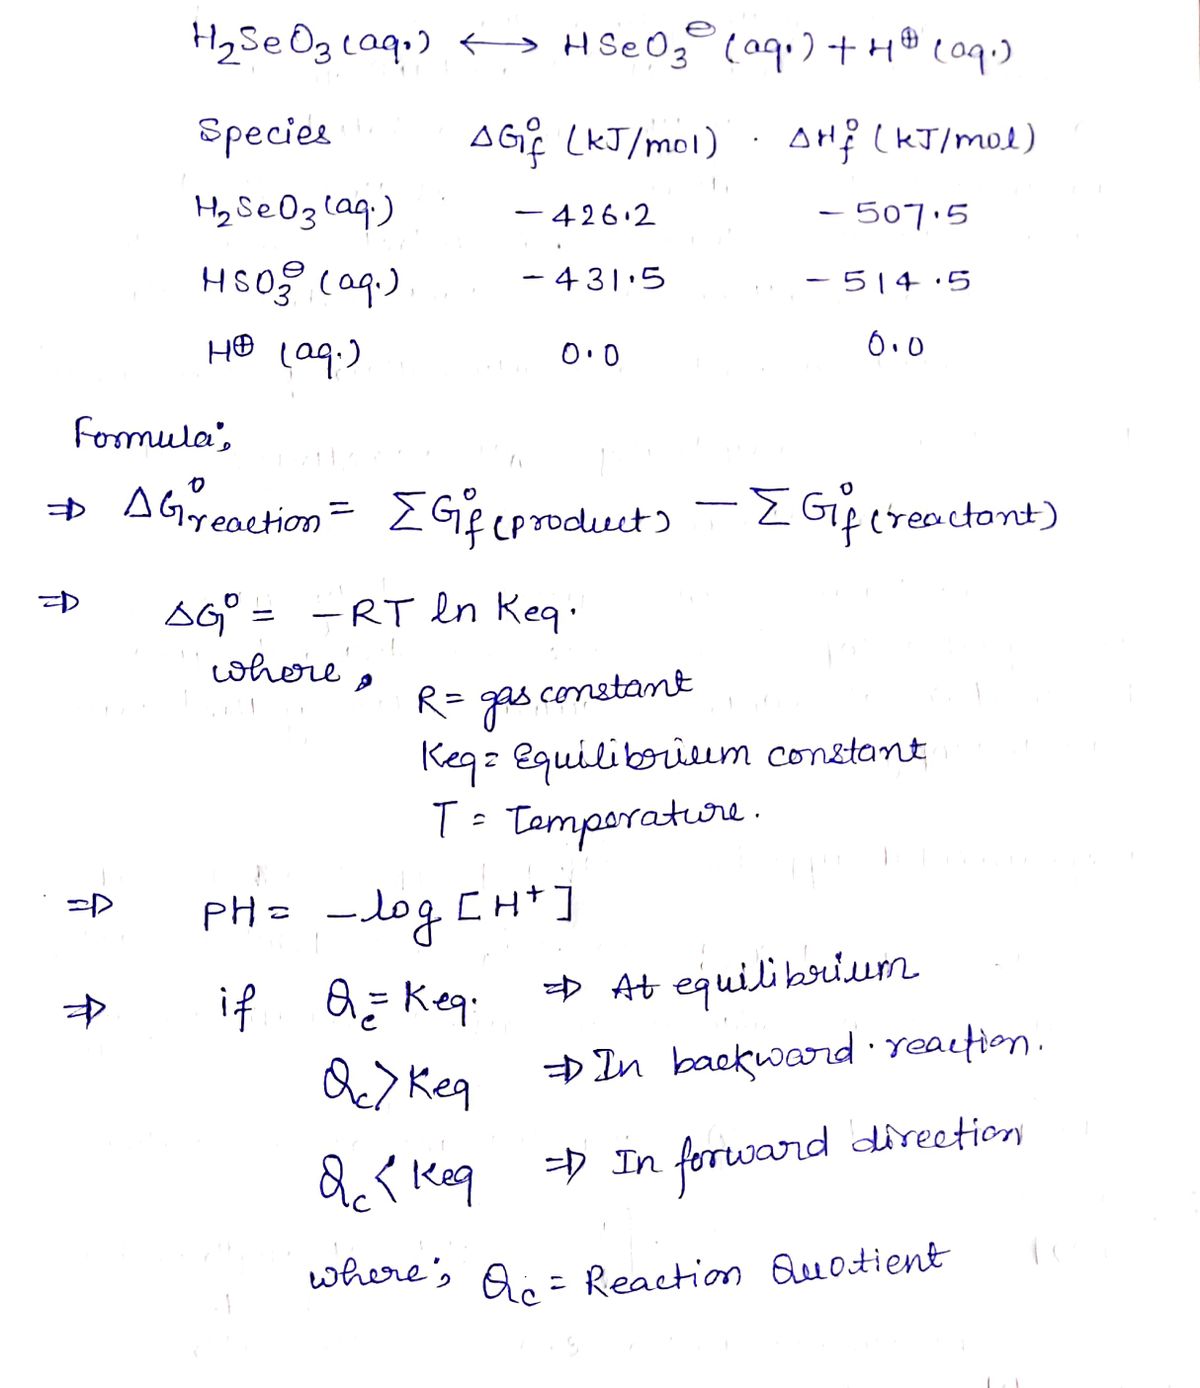 H₂SeO₃(aq.) ⟷ HSeO₃⊖(aq.) + H⊕(aq.)
Species ΔG°f (kJ/mol) . ΔH°f (kJ/mol)
H₂SeO₃(aq.) -426.2 -507.5
HSO₃⊖(aq.) -431.5 -514.5
H⊕ (aq.) 0.0 0.0
Formula:,
⇒ ΔG°reaction = ΣG°f(product) - ΣG°f(reactant)
⇒ ΔG° = -RT ln Keq.
where,
R = gas constant
Keq = Equilibrium constant
T = Temperature.
⇒ PH = -log [H+]
⇒ if Qc = Keq. ⇒ At equilibrium
Qc > Keq ⇒ In backward. reaction.
Qc < Keq ⇒ In forward direction
where:, Qc = Reaction Quotient